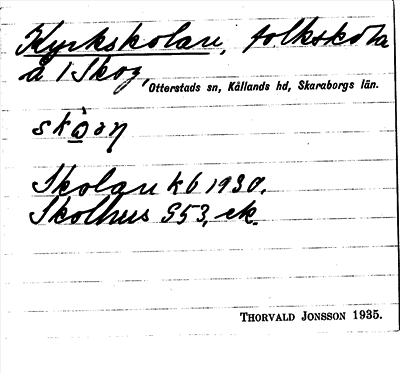 Kyrkskolan, folkskola
å 1 Skog, Otterstads sn, Kållands hd, Skaraborgs län.
Skolan kb 1930.
Skolhus G53, ek.
Thorvald Jonsson 1935.